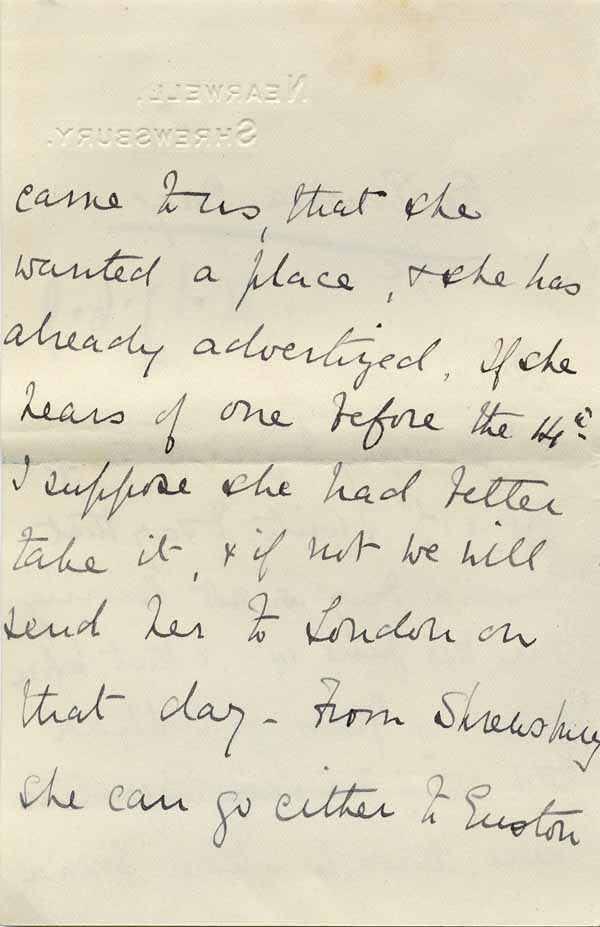 NEARWELL,
SHREWSBURY.
came to us, that she
wanted a place, & she has
already advertized. If she
hears of one before the 14th
I suppose she had better
take it, & if not we will
send her to London on
that day - From Shrewsbury
she can go either to Euston